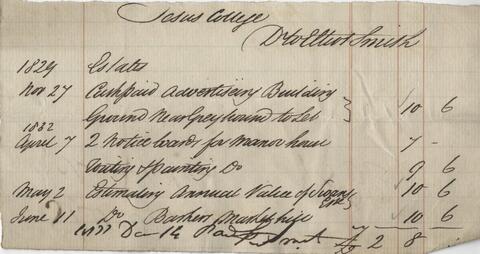 Jesus College
Dr to Elliot Smith
1829 Estates
Nov 27 Cash paid Advertising Building
Ground Near Greyhound to Let } 10 6
1832
April 7 2 Notice boards for Manor house 7 -
Writing & painting Do 9 6
May 2 Estimating Annual Value of 10 6
June 11 Do Barkers 10 6
Dec 14 Paid £ 2 8